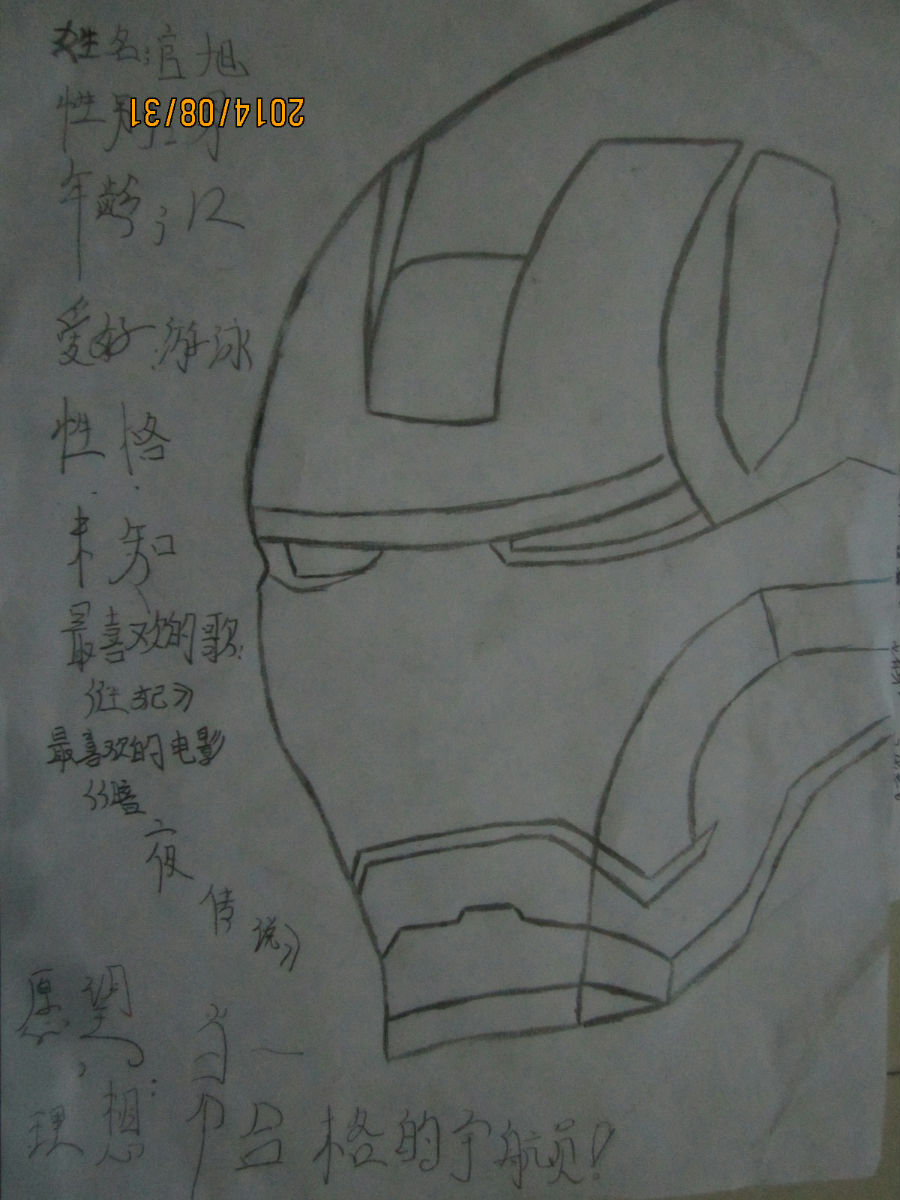 姓名:官旭
性别:男
2014/08/31
年龄:12
爱好:游泳
性格
未知
最喜欢的歌:
《狂妃》
最喜欢的电影
《暗
夜
传
说》
愿望
当一
理想:个合格的宇航员!